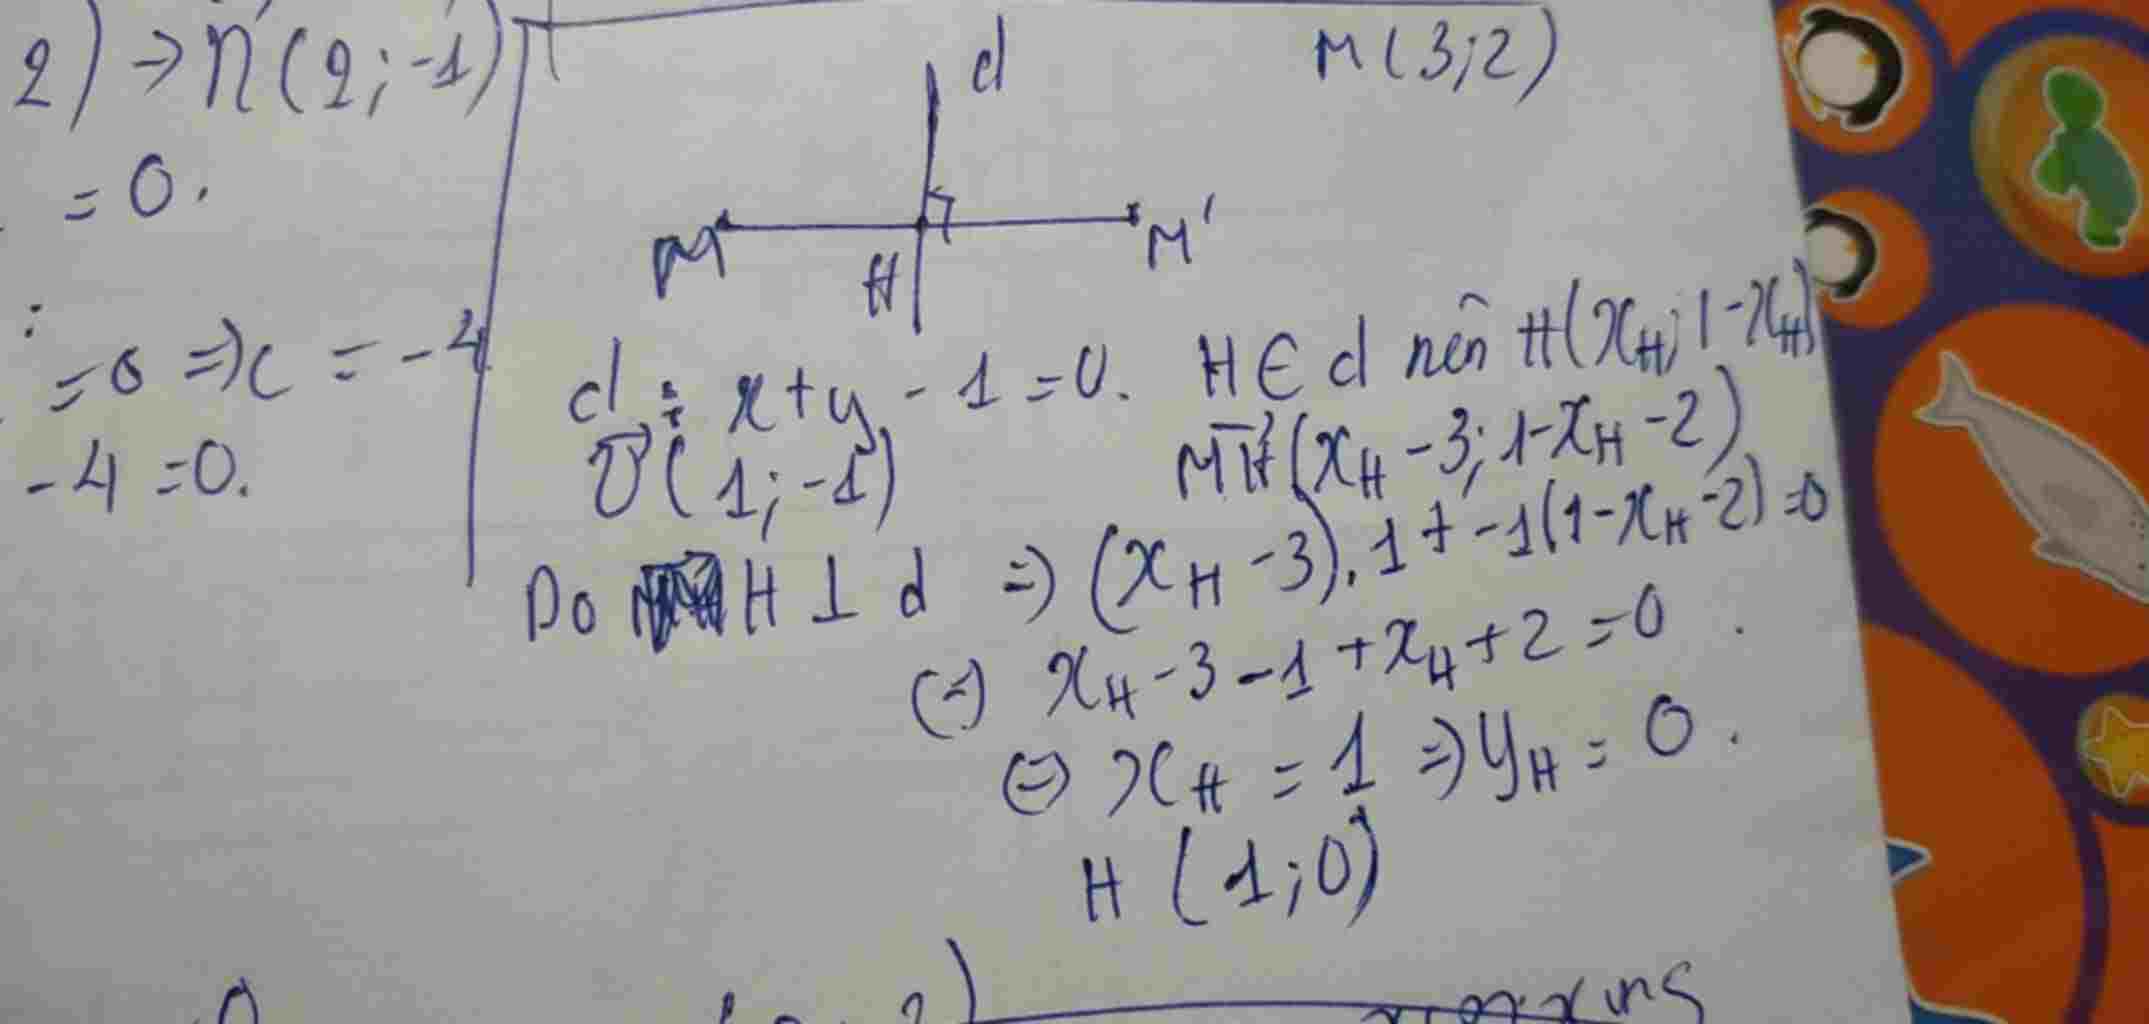 2) → n(2; -1)
= 0.
= 0 => c = -4
-4 = 0.
d
M(3;2)
M
H
M'
d : x + y - 1 = 0. H ∈ d nên H(xH; 1-xH)
v(1; -1)
MH(xH - 3; 1 - xH - 2)
Do H ⊥ d => (xH - 3). 1 + -1(1 - xH - 2) = 0
(=) xH - 3 - 1 + xH + 2 = 0
(=) xH = 1 => yH = 0.
H (1; 0)